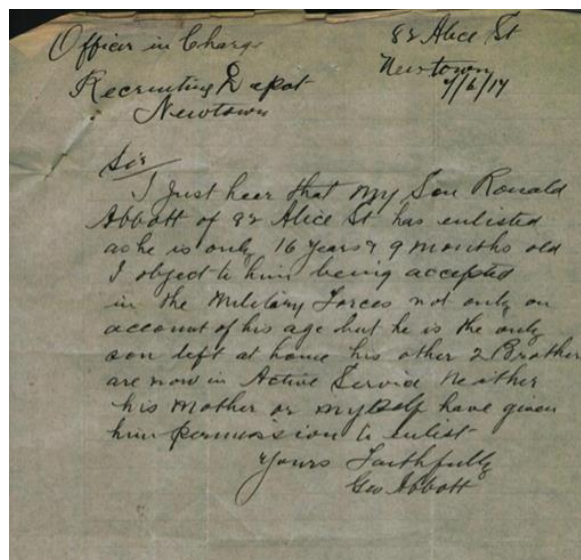 Officer in Charge
Recruiting Depot
Newtown
82 Alice St
Newtown
4/6/17
Sir
I Just hear that my Son Ronald
Abbott of 82 Alice St has enlisted
as he is only 16 years & 9 months old
I object to him being accepted
in the Military Forces not only on
account of his age but he is the only
son left at home his other 2 Brother
are now in Active Service Neither
his Mother or myself have given
him permission to enlist
Yours Faithfully
Geo Abbott